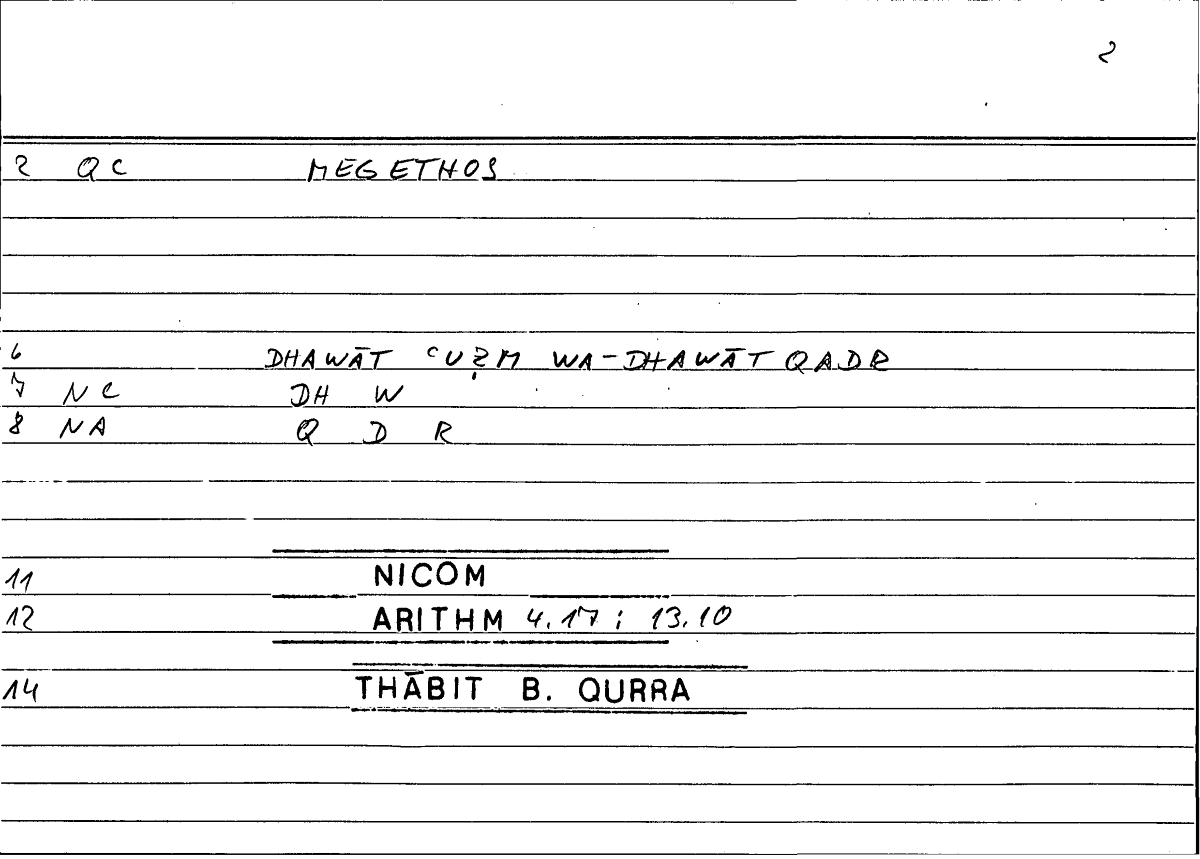 2
2 QC MEGETHOS
6 DHAWĀT ʿUẒM WA-DHAWĀT QADR
7 NC DH W
8 NA Q D R
11 NICOM
12 ARITHM 4.17 ; 13.10
14 THĀBIT B. QURRA